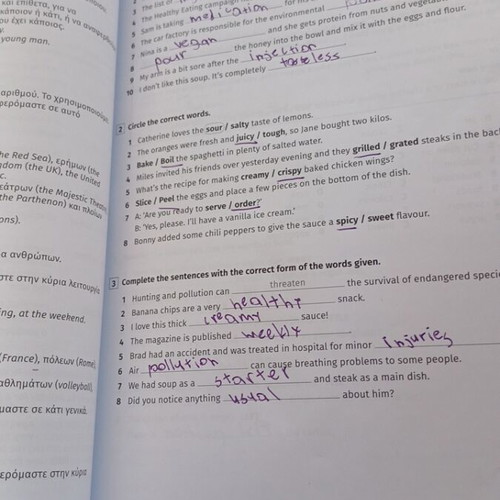 και επίθετα, για να
κάποιον ή κάτι, ή να αναφερθούμε
ου έχει κάποιος.
young man.
αριθμού. Το χρησιμοποιούμε
φερόμαστε σε αυτό
he Red Sea), ερήμων (the
gdom (the UK), the United
εάτρων (the Majestic Theatre
the Parthenon) και πλοίων
ons).
α ανθρώπων,
στε στην κύρια λειτουργία
ing, at the weekend.
(France), πόλεων (Rome)
αθλημάτων (volleyball
μαστε σε κάτι γενικά.
ερόμαστε στην κύρια
3 The list of
4 The Healthy Eating campaign
5 Sam is taking medication for his
6 The car factory is responsible for the environmental
7 Nina is a vegan and she gets protein from nuts and vegetables
8 pour the honey into the bowl and mix it with the eggs and flour.
9 My arm is a bit sore after the injection
10 I don't like this soup. It's completely tasteless.
2 Circle the correct words.
1 Catherine loves the sour / salty taste of lemons.
2 The oranges were fresh and juicy / tough, so Jane bought two kilos.
3 Bake / Boil the spaghetti in plenty of salted water.
4 Miles invited his friends over yesterday evening and they grilled / grated steaks in the back
5 What's the recipe for making creamy / crispy baked chicken wings?
6 Slice / Peel the eggs and place a few pieces on the bottom of the dish.
7 A: 'Are you ready to serve / order?'
B: 'Yes, please. I'll have a vanilla ice cream.'
8 Bonny added some chili peppers to give the sauce a spicy / sweet flavour.
3 Complete the sentences with the correct form of the words given.
1 Hunting and pollution can threaten the survival of endangered specie
2 Banana chips are a very healthy snack.
3 I love this thick creamy sauce!
4 The magazine is published weekly
5 Brad had an accident and was treated in hospital for minor injuries
6 Air pollution can cause breathing problems to some people.
7 We had soup as a starter and steak as a main dish.
8 Did you notice anything usual about him?